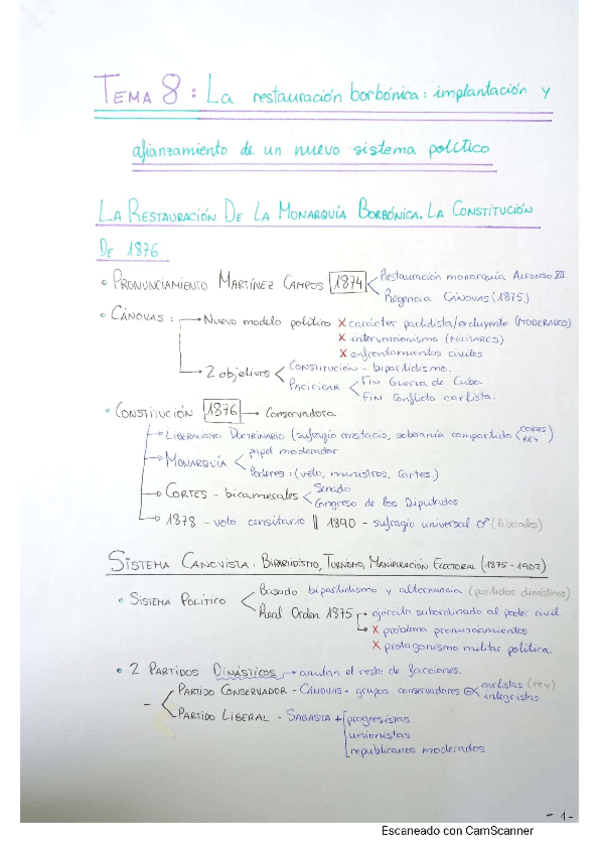 TEMA 8: La restauración borbónica: implantación y
afianzamiento de un nuevo sistema político
LA RESTAURACIÓN DE LA MONARQUÍA BORBÓNICA. LA CONSTITUCIÓN
DE 1876
• PRONUNCIAMIENTO MARTÍNEZ CAMPOS 1874 < Restauración monarquía ALFONSO XII
Regencia CÁNOVAS (1875)
• CÁNOVAS: → Nuevo modelo político X carácter partidista/excluyente (MODERADO)
X intervencionismo (MILITARES)
X enfrentamientos civiles
→ 2 objetivos < CONSTITUCIÓN - bipartidismo.
PACIFICAR < FIN Guerra de Cuba
FIN conflicto carlista.
• CONSTITUCIÓN 1876 → Conservadora
→ LIBERALISMO DOCTRINARIO (sufragio censitario, soberanía compartida < CORTES
REY)
→ MONARQUÍA < papel moderador
Poderes: (veto, ministros, Cortes.)
→ CORTES - bicamerales < Senado
Congreso de los Diputados
→ 1878 - voto censitario || 1890 - sufragio universal ♂ (liberales)
SISTEMA CANOVISTA: BIPARTIDISMO, TURNISMO, MANIPULACIÓN ELECTORAL (1875-1902)
• SISTEMA POLÍTICO < Basado bipartidismo y alternancia (partidos dinásticos)
Real Orden 1875 → ejército subordinado al poder civil
X problema pronunciamientos
X protagonismo militar política.
• 2 PARTIDOS DINÁSTICOS → anulan el resto de facciones.
- < PARTIDO CONSERVADOR - CÁNOVAS + grupos conservadores carlistas (rev)
integristas
PARTIDO LIBERAL - SAGASTA + progresistas
unionistas
republicanos moderados
- 1 -
Escaneado con CamScanner